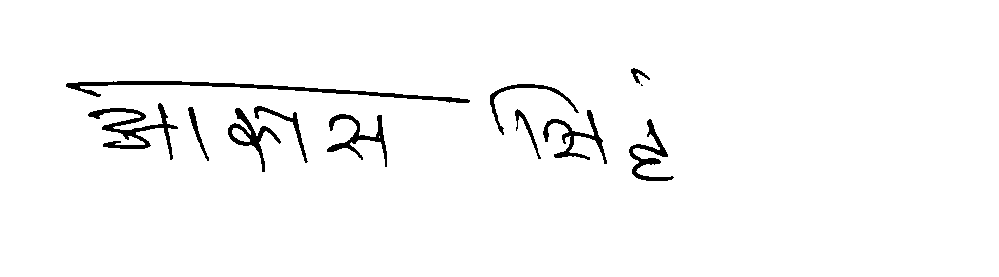 आकास सिहं